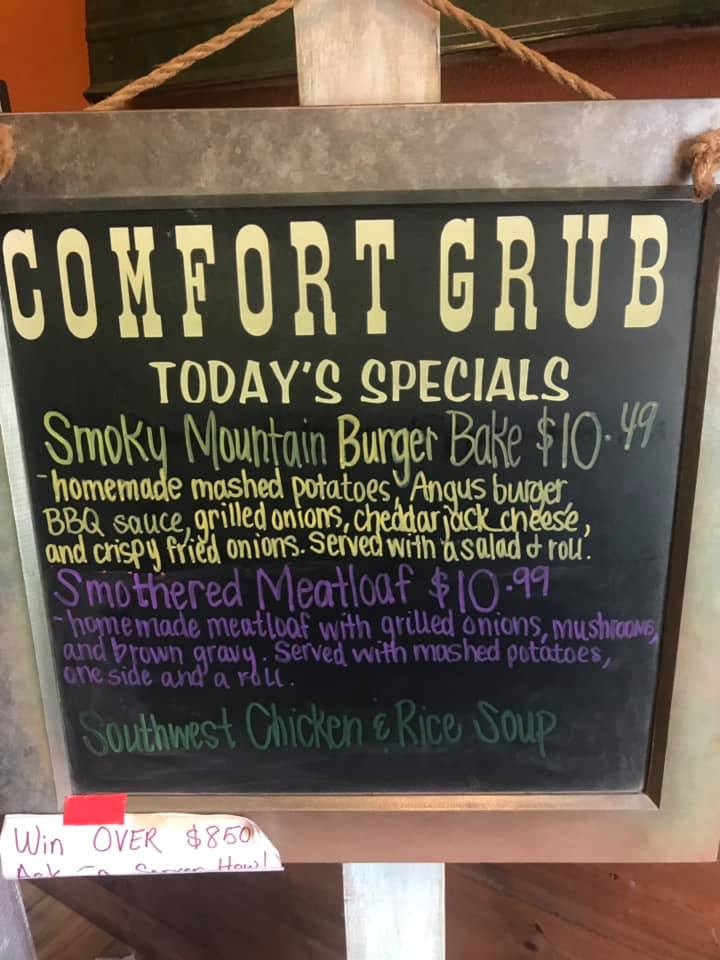 COMFORT GRUB
TODAY'S SPECIALS
Smoky Mountain Burger Bake $10.49
-homemade mashed potatoes, Angus burger,
BBQ sauce, grilled onions, cheddar jack cheese,
and crispy fried onions. Served with a salad & roll.
Smothered Meatloaf $10.99
-homemade meatloaf with grilled onions, mushrooms,
and brown gravy. Served with mashed potatoes,
one side and a roll.
Southwest Chicken & Rice Soup
Win OVER $850
Ask a Server How!